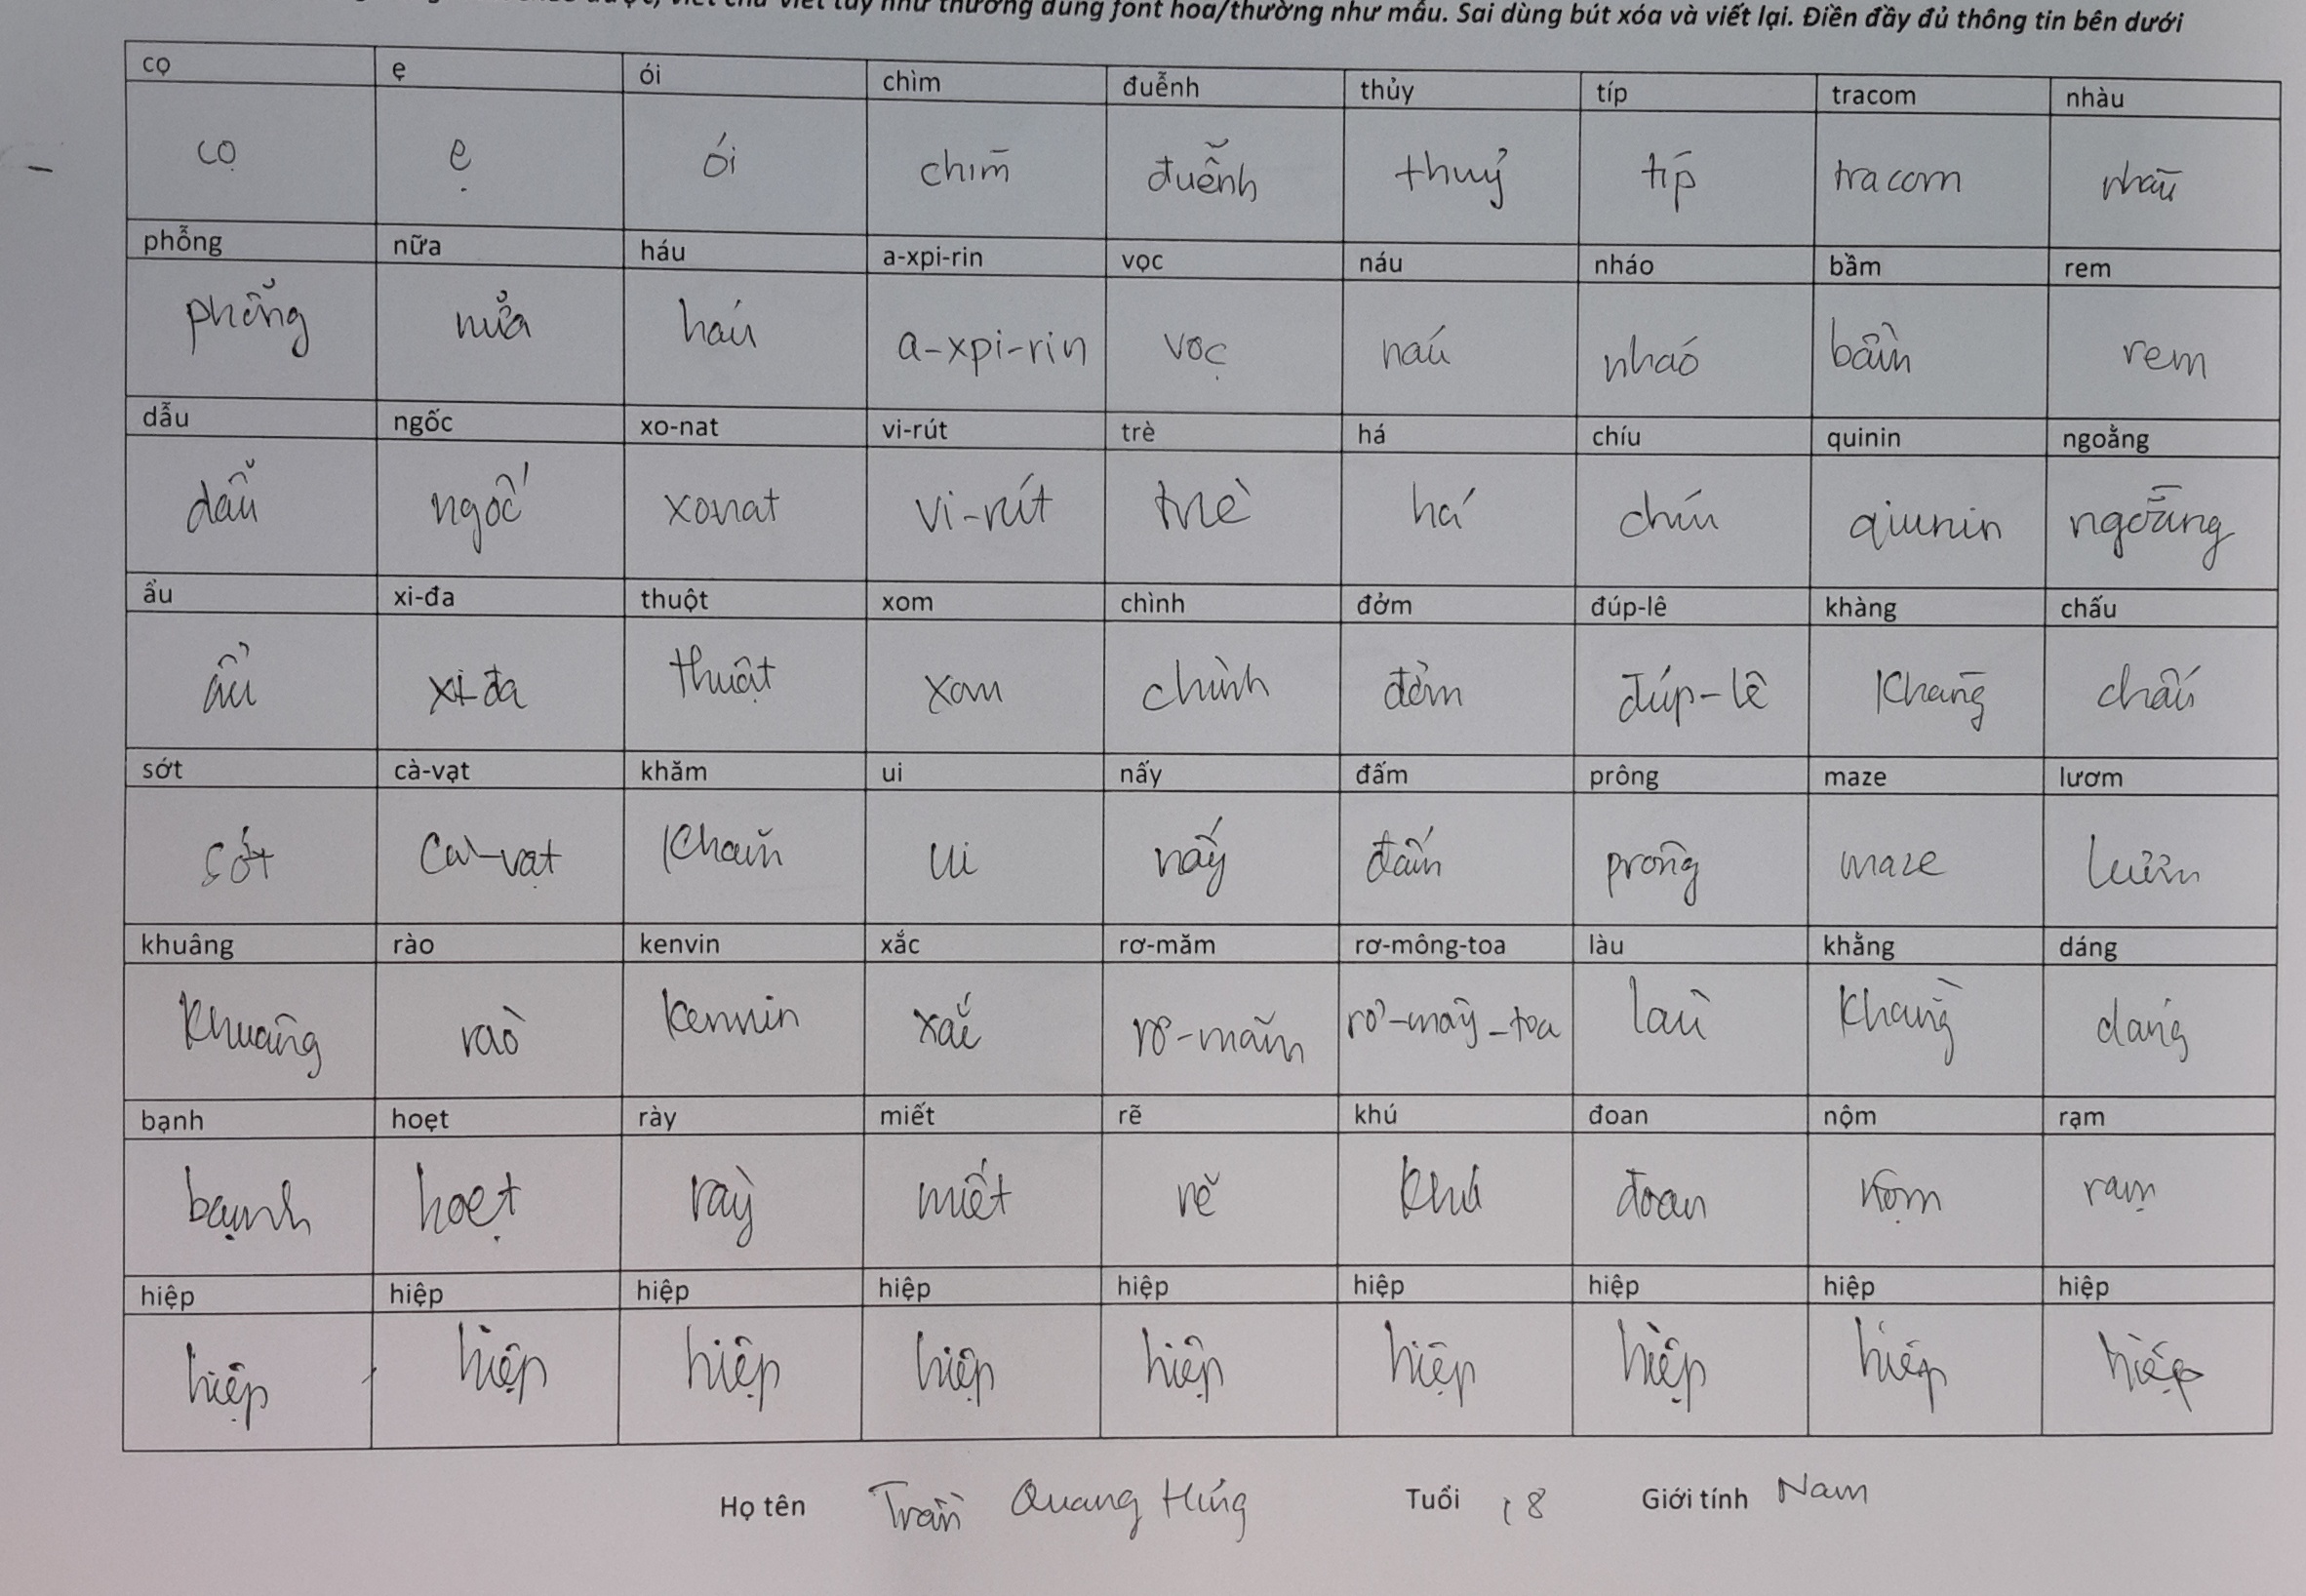 viết chữ viết tay như thường dùng font hoa/thường như mẫu. Sai dùng bút xóa và viết lại. Điền đầy đủ thông tin bên dưới
cọ ẹ ói chìm đuễnh thủy típ tracom nhàu
cọ ẹ ói chim đuễnh thuỷ típ tracom nhāu
phỗng nữa háu a-xpi-rin vọc náu nháo bầm rem
phỗng nửa háu a-xpi-rin vọc náu nháo bầm rem
dẫu ngốc xo-nat vi-rút trè há chíu quinin ngoằng
dẫu ngốc xonat vi-rút trè há chíu quinin ngoằng
ẩu xi-đa thuột xom chình đởm đúp-lê khàng chấu
ẩu xi-đa thuột xom chình đởm đúp-lê Khàng chấu
sớt cà-vạt khăm ui nấy đấm prông maze lươm
sớt Cà-vạt Khăm ui nấy đấm prông maze lươm
khuâng rào kenvin xắc rơ-măm rơ-mông-toa làu khằng dáng
Khuâng rào Kenvin xắc rơ-măm rơ-mông-toa làu Khằng dáng
bạnh hoẹt rày miết rẽ khú đoan nộm rạm
bạnh hoẹt rày miết rẽ Khú đoan nộm rạm
hiệp hiệp hiệp hiệp hiệp hiệp hiệp hiệp hiệp
hiệp hiệp hiệp hiệp hiệp hiệp hiệp hiệp hiệp
Họ tên Trần Quang Hưng Tuổi 18 Giới tính Nam